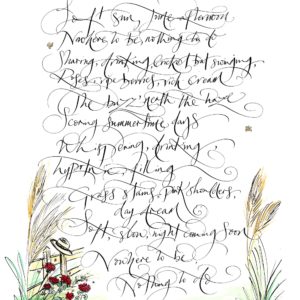 Soft sun, late afternoon
Nowhere to be, nothing to do
Sharing, drinking, cricket bat swinging,
Roses, ripe berries, rich cream
The buzz 'neath the haze
Scoring summertime days
spinning, drinking,
hypnotic, filling
Grass stains, pink shoulders,
day dream
Soft, slow, night coming soon
Nowhere to be
Nothing to do